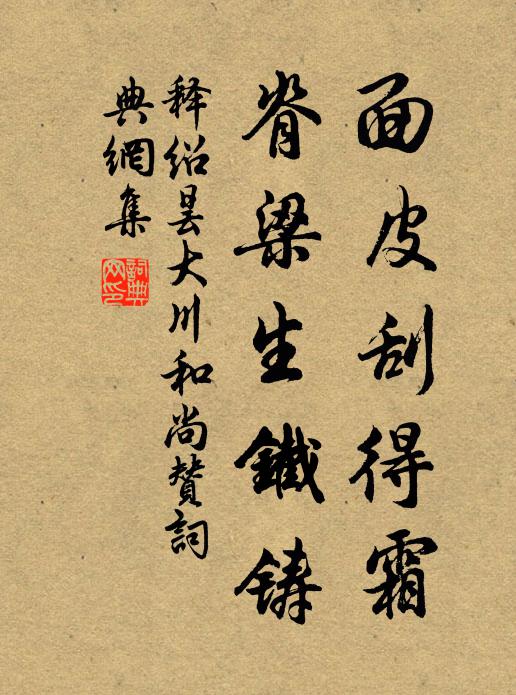 面皮刮得霜
脊梁生鐵鑄
释绍昙大川和尚赞詞
典網集
詞典网印